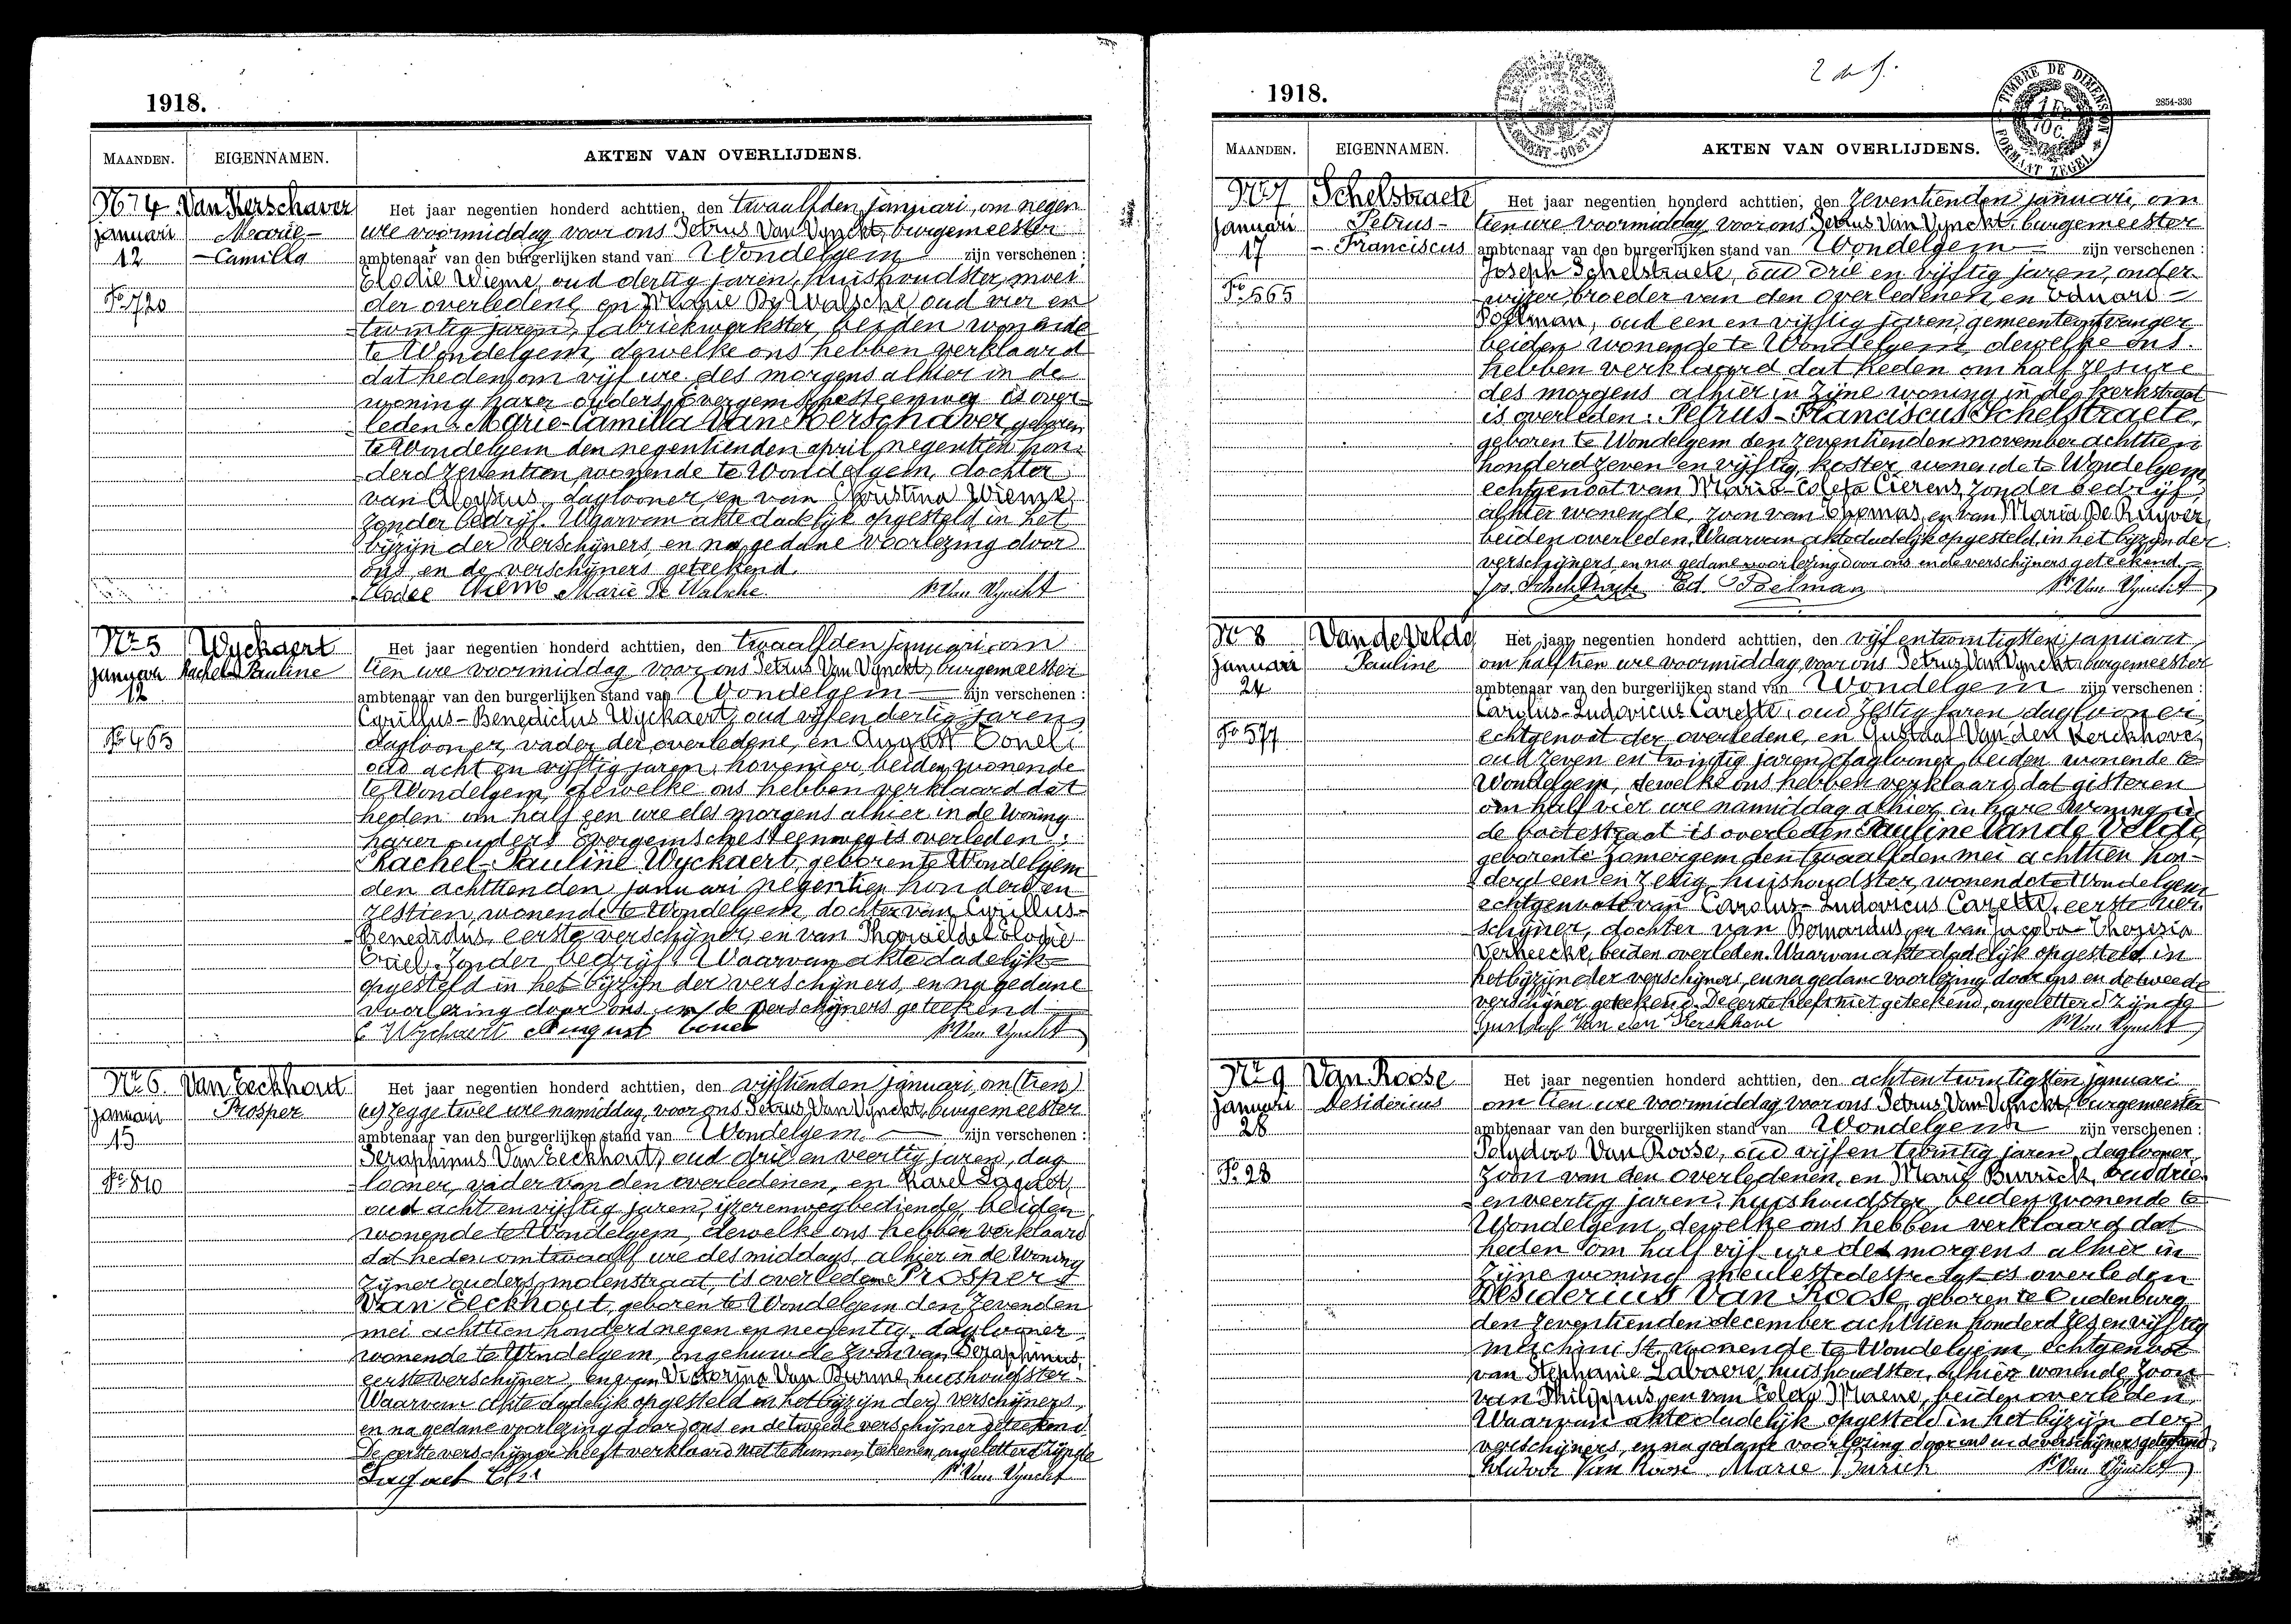 1918.
MAANDEN. EIGENNAMEN. AKTEN VAN OVERLIJDENS.
No 4 Van Kerschaver Het jaar negentien honderd achttien, den twaalfden januari, om negen
januari Marie- ure voormiddag voor ons Petrus Van Vynckt, burgemeester
12 -Camilla ambtenaar van den burgerlijken stand van Wondelgem zijn verschenen :
Elodie Wieme, oud dertig jaren, huishoudster, moei
Fo 720 der overledene, en Marie De Walsche, oud vier en
twintig jaren, fabriekwerkster, beiden wonende
te Wondelgem, dewelke ons hebben verklaard
dat heden, om vijf ure des morgens alhier in de
woning harer ouders, Evergemschesteenweg is over-
leden : Marie-Camilla Van Kerschaver, geboren
te Wondelgem den negentienden april negentien hon-
derd zeventien, wonende te Wondelgem, dochter
van Aloysius, daglooner, en van Christina Wieme,
zonder bedrijf. Waarvan akte dadelijk opgesteld in het
bijzijn der verschijners, en na gedane voorlezing door
ons en de verschijners geteekend.
Elodee Wieme Marie De Walsche P. Van Vynckt
No 5 Wyckaert Het jaar negentien honderd achttien, den twaalfden januari, om
januari Rachel-Pauline tien ure voormiddag voor ons Petrus Van Vynckt, burgemeester
12 ambtenaar van den burgerlijken stand van Wondelgem zijn verschenen :
Cyrillus-Benedictus Wyckaert, oud vijf en dertig jaren,
Fo 465 daglooner, vader der overledene, en August
oud acht en vijftig jaren, hovenier, beiden wonende
te Wondelgem, dewelke ons hebben verklaard dat
heden om half een ure des morgens alhier in de woning
harer ouders Evergemschesteenweg is overleden :
Rachel-Pauline Wyckaert, geboren te Wondelgem
den achttienden januari negentien honderd en
zestien, wonende te Wondelgem, dochter van Cyrillus-
Benedictus, eerste verschijner, en van
zonder bedrijf. Waarvan akte dadelijk
opgesteld in het bijzijn der verschijners, en na gedane
voorlezing door ons en de verschijners geteekend
C Wyckaert August P. Van Vynckt
No 6. Van Eeckhout Het jaar negentien honderd achttien, den vijftienden januari, om (tien)
januari Prosper zegge twee ure namiddag, voor ons Petrus Van Vynckt, burgemeester
15 ambtenaar van den burgerlijken stand van Wondelgem. zijn verschenen :
Seraphinus Van Eeckhout, oud drie en veertig jaren, dag
Fo 810 looner, vader van den overledenen, en Karel
oud acht en vijftig jaren, ijzerenwegbediende, beiden
wonende te Wondelgem, dewelke ons hebben verklaard
dat heden om twaalf ure des middags, alhier in de woning
zijner ouders, molenstraat, is overleden : Prosper
Van Eeckhout, geboren te Wondelgem den zevenden
mei achttien honderd negen en negentig, daglooner,
wonende te Wondelgem, ongehuwd, zoon van Seraphinus,
eerste verschijner, en van Victorina Van Burme, huishoudster.
Waarvan akte dadelijk opgesteld in het bijzijn der verschijners,
en na gedane voorlezing door ons en de tweede verschijner geteekend
De eerste verschijner heeft verklaard niet te kunnen teekenen, ongeletterd zijnde
P. Van Vynckt
2 de f.
1918.
TIMBRE DE DIMENSION
FORMAAT ZEGEL
2854-336
MAANDEN. EIGENNAMEN. AKTEN VAN OVERLIJDENS.
No 7 Schelstraete Het jaar negentien honderd achttien, den zeventienden januari, om
januari Petrus- tien ure voormiddag voor ons Petrus Van Vynckt, burgemeester
17 - Franciscus ambtenaar van den burgerlijken stand van Wondelgem zijn verschenen :
Joseph Schelstraete, oud drie en vijftig jaren, onder-
Fo 565 wijzer, broeder van den overledenen, en Eduard
Poelman, oud een en vijftig jaren, gemeenteontvanger
beiden wonende te Wondelgem, dewelke ons
hebben verklaard dat heden om half zes ure
des morgens alhier in zijne woning in de kerkstraat
is overleden : Petrus-Franciscus Schelstraete,
geboren te Wondelgem den zeventienden november achttien
honderd zeven en vijftig, koster, wonende te Wondelgem,
echtgenoot van Marie-Coleta Cierens, zonder bedrijf,
alhier wonende, zoon van Thomas, en van Maria De Ruyver,
beiden overleden. Waarvan akte dadelijk opgesteld, in het bijzijn der
verschijners, en na gedane voorlezing door ons en de verschijners geteekend.
Jos. Schelstraete Ed. Poelman P. Van Vynckt
No 8 Van de Velde Het jaar negentien honderd achttien, den vijf en twintigsten januari
januari Pauline om half tien ure voormiddag, voor ons Petrus Van Vynckt, burgemeester
24 ambtenaar van den burgerlijken stand van Wondelgem zijn verschenen :
Carolus-Ludovicus Carette, oud zestig jaren, daglooner,
Fo 577 echtgenoot der overledene, en Gustaaf Van den Kerckhove,
oud zeven en twintig jaren, daglooner, beiden wonende te
Wondelgem, dewelke ons hebben verklaard dat gisteren
om half vier ure namiddag alhier in hare woning in
de is overleden : Pauline Van de Velde
geboren te Zomergem den twaalfden mei achttien hon-
derd een en zestig, huishoudster, wonende te Wondelgem
echtgenoote van Carolus-Ludovicus Carette, eerste ver-
schijner, dochter van Bernardus, en van Jacoba-Theresia
Verheecke, beiden overleden. Waarvan akte dadelijk opgesteld in
het bijzijn der verschijners, en na gedane voorlezing door ons en de tweede
verschijner geteekend. De eerste heeft niet geteekend, ongeletterd zijnde
Gustaaf Van den Kerckhove P. Van Vynckt
No 9 Van Roose Het jaar negentien honderd achttien, den acht en twintigsten januari
januari Desiderius om tien ure voormiddag voor ons Petrus Van Vynckt, burgemeester
28 ambtenaar van den burgerlijken stand van Wondelgem zijn verschenen :
Polydoor Van Roose, oud vijf en twintig jaren, daglooner,
Fo 28 zoon van den overledenen, en Marie Burrick, oud drie
en veertig jaren, huishoudster, beiden wonende te
Wondelgem, dewelke ons hebben verklaard dat
heden om half vijf ure des morgens alhier in
zijne woning meulestedestraat is overleden
Desiderius Van Roose, geboren te Oudenburg
den zeventienden december achttien honderd zes en vijftig
machinist, wonende te Wondelgem, echtgenoot
van Stephanie Labaere, huishoudster, alhier wonende, zoon
van Philippus, en van Coleta Maene, beiden overleden.
Waarvan akte dadelijk opgesteld in het bijzijn der
verschijners, en na gedane voorlezing door ons en de verschijners geteekend.
Van Roose Marie Burick P. Van Vynckt